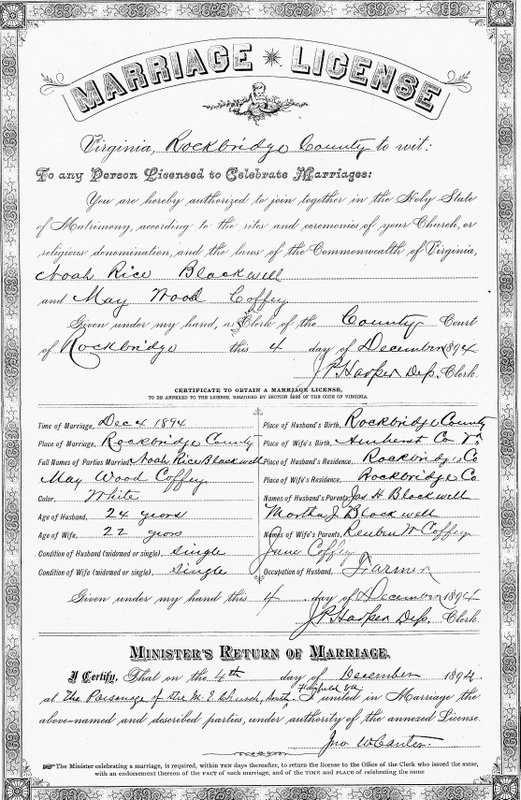 MARRIAGE LICENSE
Virginia, Rockbridge County to wit:
To any Person Licensed to Celebrate Marriages:
You are hereby authorized to join together in the Holy State
of Matrimony, according to the rites and ceremonies of your Church, or
religious denomination, and the laws of the Commonwealth of Virginia,
Noah Rice Blackwell
and May Wood Coffey
Given under my hand, as Clerk of the County Court
of Rockbridge this 4 day of December 1894
J.P. Harper Dep. Clerk.
CERTIFICATE TO OBTAIN A MARRIAGE LICENSE,
TO BE ANNEXED TO THE LICENSE, REQUIRED BY SECTION OF THE CODE OF VIRGINIA.
Time of Marriage, Dec 4 1894
Place of Marriage, Rockbridge County
Full Names of Parties Married, Noah Rice Blackwell
May Wood Coffey
Color, White
Age of Husband, 24 years
Age of Wife, 22 years
Condition of Husband (widowed or single), Single
Condition of Wife (widowed or single), Single
Place of Husband's Birth, Rockbridge County
Place of Wife's Birth, Amherst Co Va
Place of Husband's Residence, Rockbridge Co
Place of Wife's Residence, Rockbridge Co.
Names of Husband's Parents, Jas H Blackwell
Martha J Blackwell
Names of Wife's Parents, Reuben W Coffey
Jane Coffey
Occupation of Husband, Farmer
Given under my hand this 4 day of December 1894
J.P. Harper Dep. Clerk.
MINISTER'S RETURN OF MARRIAGE.
I Certify, That on the 4th day of December 1894
at The Parsonage of the M. E. Church, South Fairfield Va I united in Marriage the
above-named and described parties, under authority of the annexed License.
Jno W Canter
The Minister celebrating a marriage, is required, within TEN days thereafter, to return the license to the Office of the Clerk who issued the same,
with an endorsement thereon of the FACT of such marriage, and of the TIME and PLACE of celebrating the same